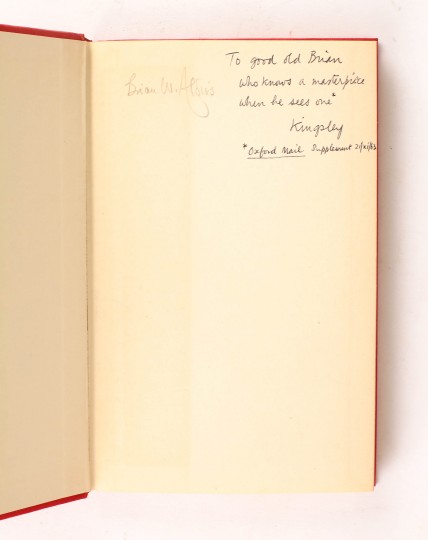 To good old Brian
Brian W. Aldiss
who knows a masterpiece
when he sees one*
Kingsley
*Oxford Mail Supplement